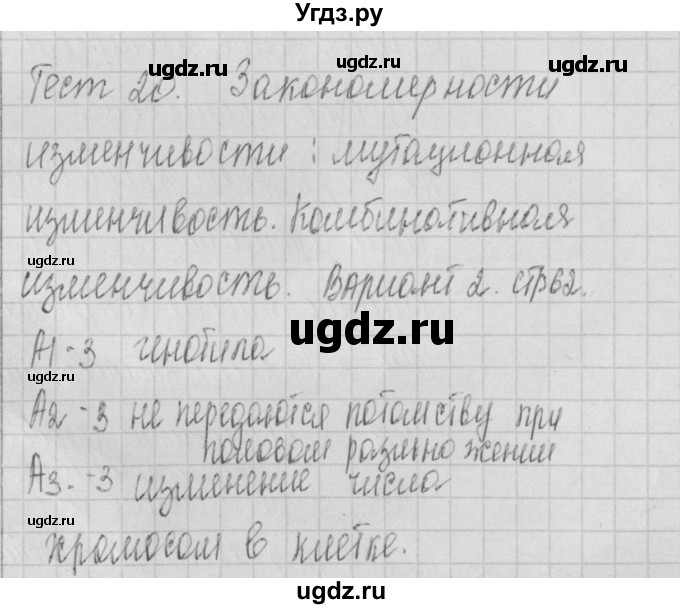 Угдз.ру
Тест 20. Закономерности
изменчивости: мутационная
изменчивость. Комбинативная
изменчивость. Вариант 2. стр62.
А1-3 генотипа
А2-3 не передаются потомству при
половом размножении
А3.-3 изменение числа
хромосом в клетке.
ugdz.ru
ugdz.ru
ugdz.ru
ugdz.ru
ugdz.ru
ugdz.ru
ugdz.ru
ugdz.ru
ugdz.ru
ugdz.ru
ugdz.ru